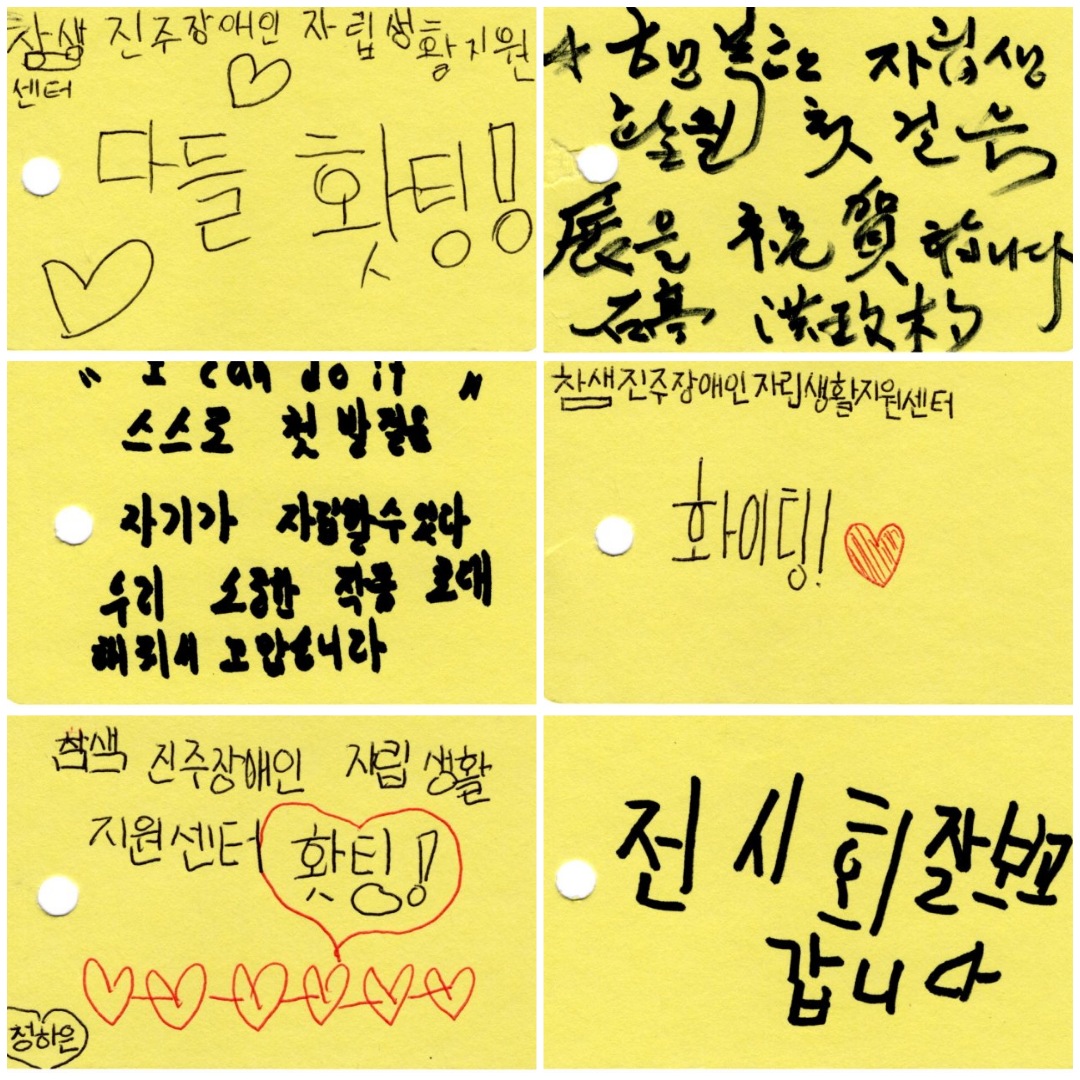 참샘 진주장애인 자립생활지원
센터
다들 홧팅!
행복한 자립생
활의 첫 걸음
展을 祝賀 합니다
石亭
"I can do it"
스스로 첫 발걸음
자기가 자립할수있다
우리 소중한 작품 초대
해주셔서 고맙습니다
참샘진주장애인자립생활지원센터
화이팅!
참샘 진주장애인 자립생활
지원센터 홧팅!
청하은
전시회잘보고
갑니다